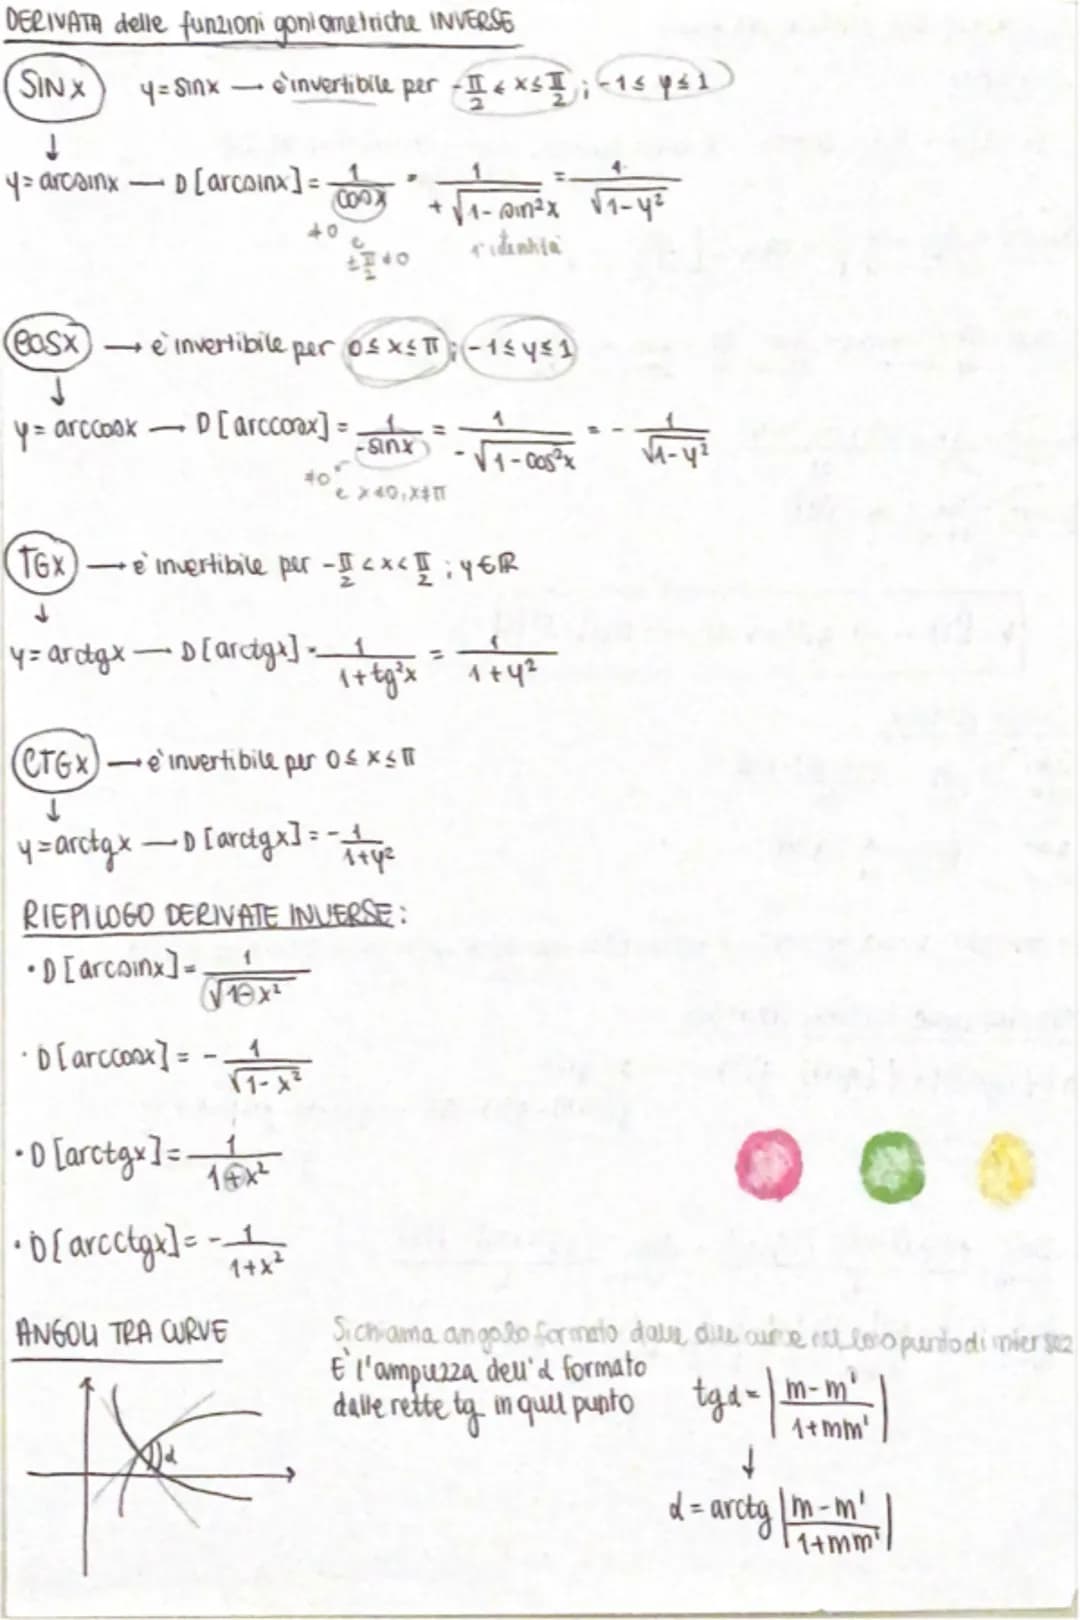 DERIVATA delle funzioni goniometriche INVERSE
SINX y=sinx → è invertibile per -π/2 ≤ x ≤ π/2 ; -1 ≤ y ≤ 1
↓
y= arcsinx — D[arcsinx] = 1/cosx = 1/+√1-sin²x = 1/√1-y²
≠0 e ±π/2 ≠0 identità
COSX → è invertibile per 0≤x≤π ; -1≤y≤1
↓
y= arccosx — D[arccosx] = 1/-sinx = 1/-√1-cos²x = - 1/√1-y²
≠0 e x≠0, x≠π
TGX → è invertibile per -π/2 < x < π/2 ; y∈R
↓
y= arctgx — D[arctgx] = 1/1+tg²x = 1/1+y²
CTGX → è invertibile per 0≤x≤π
↓
y=arctgx — D[arctgx] = - 1/1+y²
RIEPILOGO DERIVATE INVERSE:
• D[arcsinx] = 1/√1-x²
• D[arccosx] = - 1/√1-x²
• D[arctgx] = 1/1+x²
• D[arcctgx] = - 1/1+x²
ANGOLI TRA CURVE
Si chiama angolo formato dalle due curve nel loro punto di
È l'ampiezza dell'α formato
dalle rette tg in quel punto
tgα = |m-m'/1+mm'|
↓
α = arctg |m-m'/1+mm'|
α